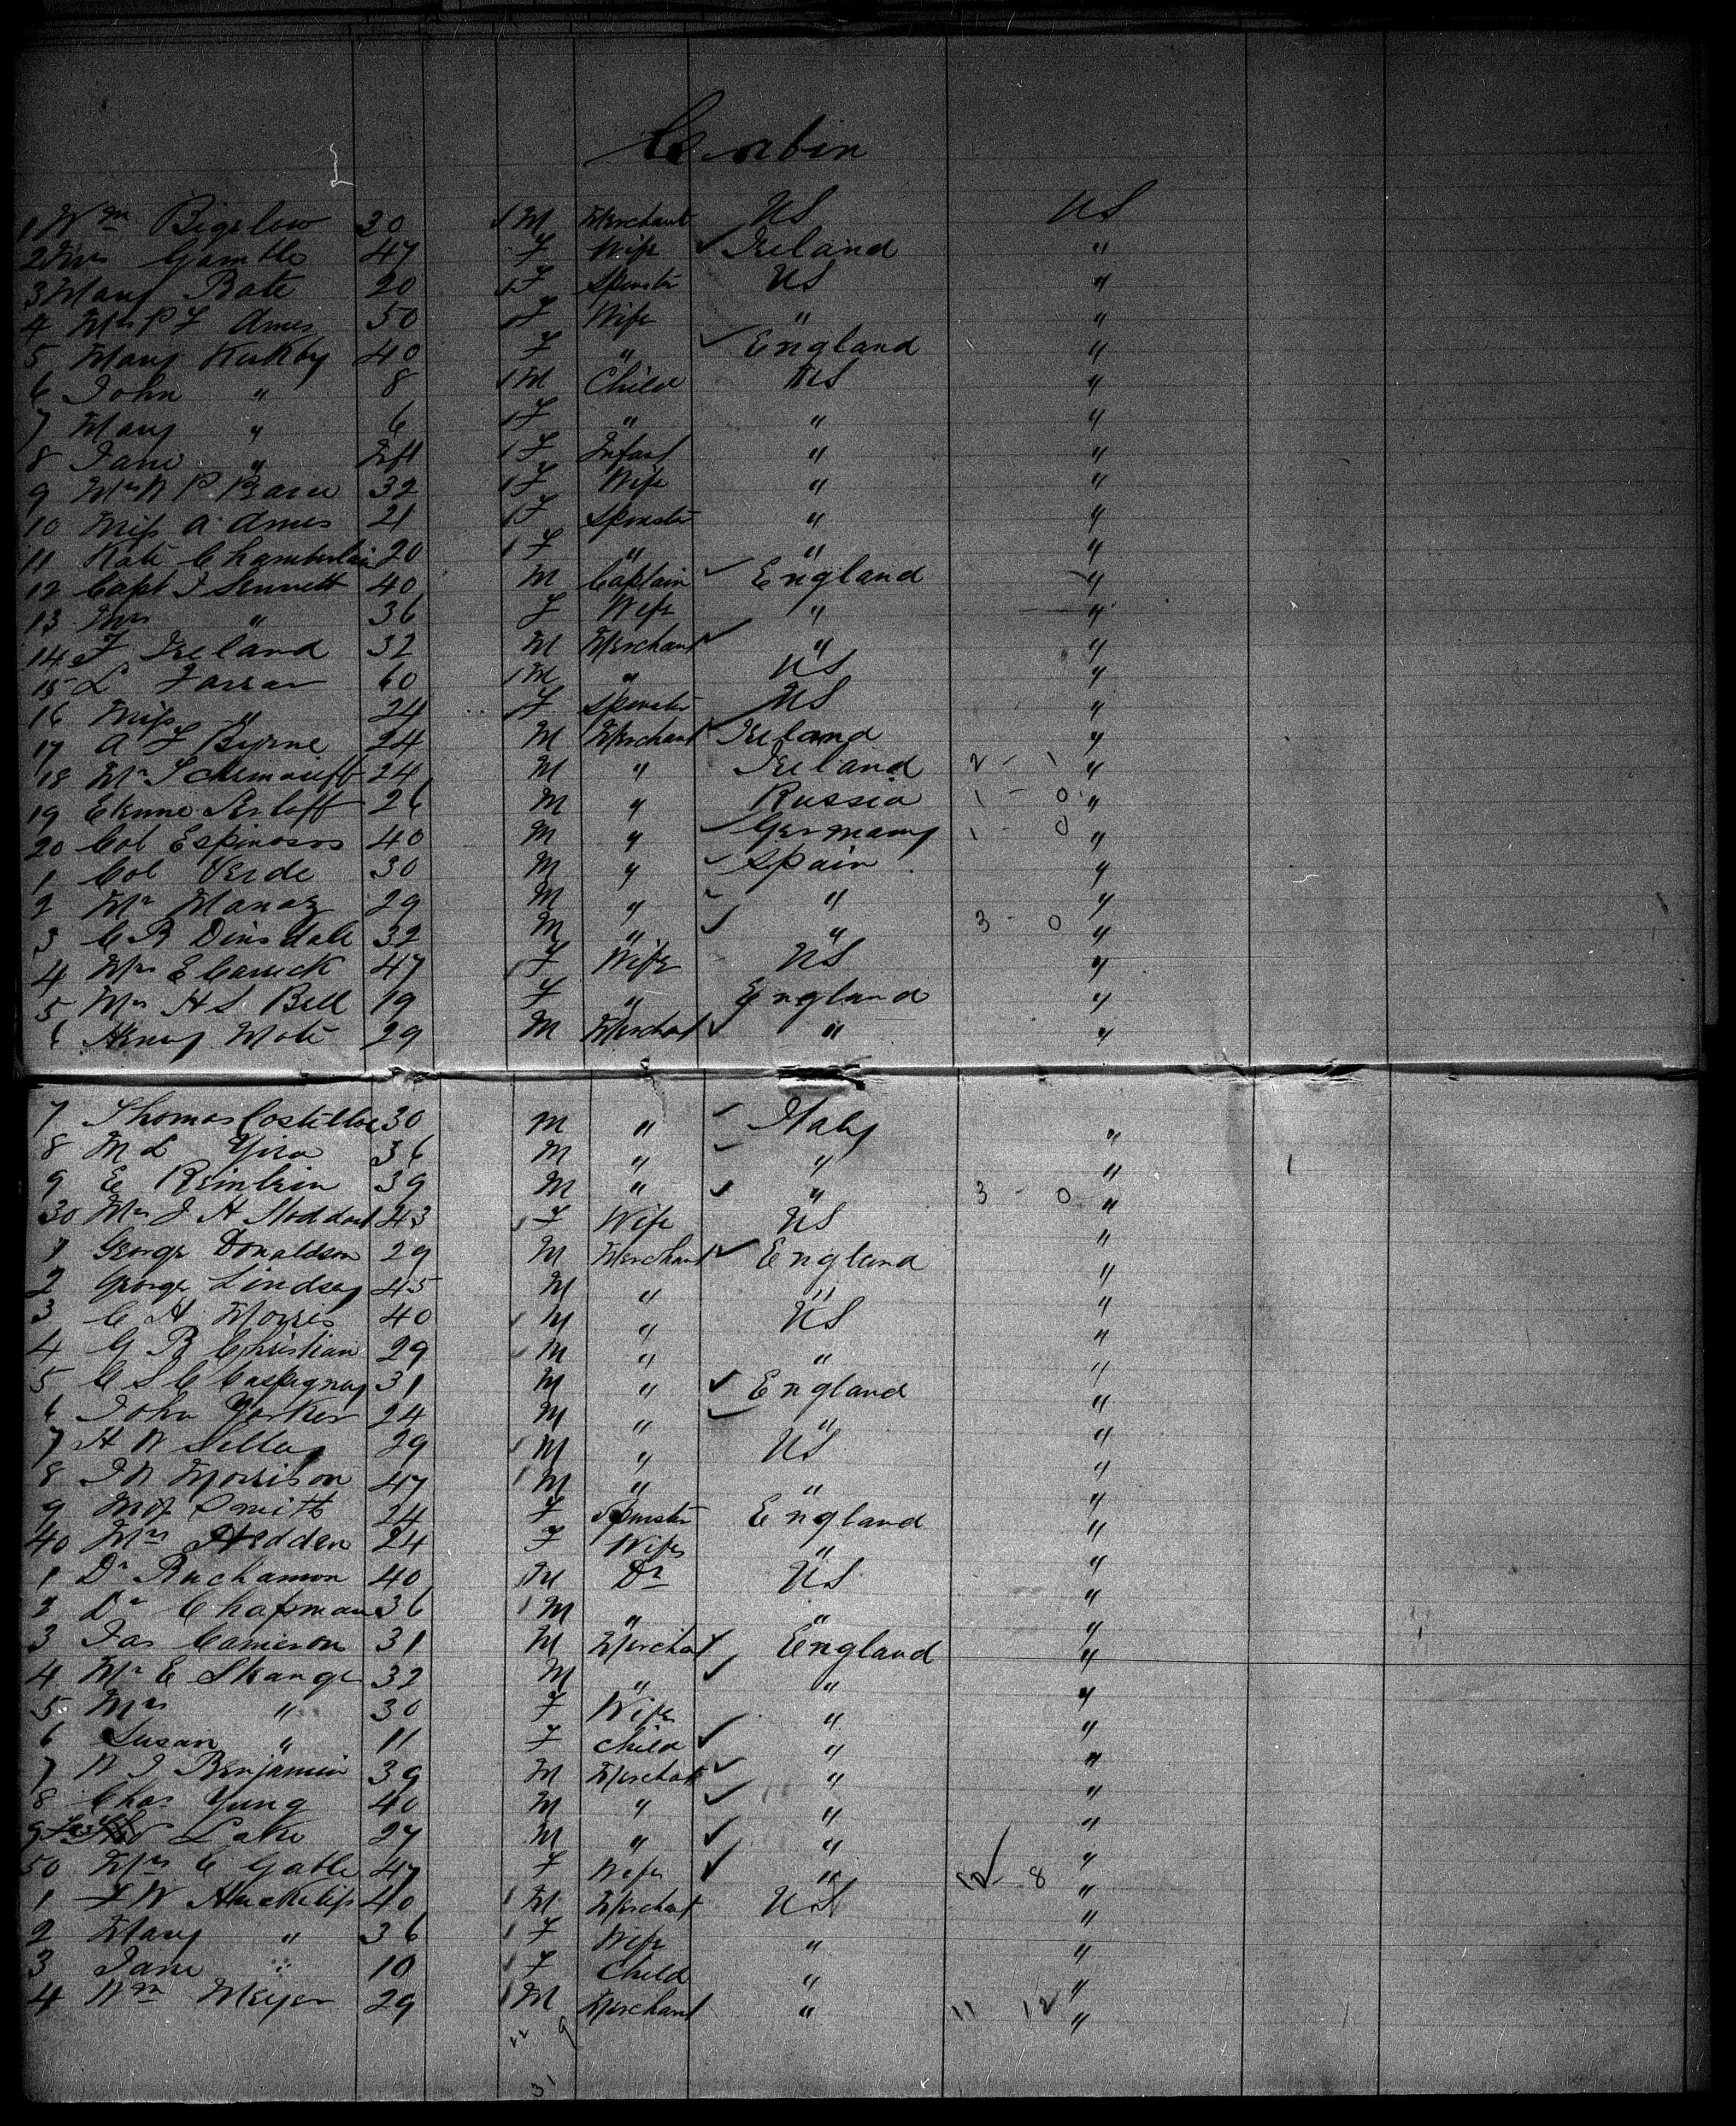 Cabin
1 Wm Bigelow 30 M Merchant US US
2 Mrs Gamble 47 F Wife Ireland "
3 Mary Bate 20 F Spinster US "
4 Mrs P F Ames 50 F Wife " "
5 Mary Kirkby 40 F " England "
6 John " 8 M Child US "
7 Mary " 6 F " " "
8 Jane " Inft F Infant " "
9 Mrs W P 32 F Wife " "
10 Miss A Ames 21 F Spinster " "
11 Kate Chamberlain 20 F " " "
12 Capt J Sennett 40 M Captain England "
13 Mrs " 36 F Wife " "
14 F Ireland 32 M Merchant " "
15 L Farrar 60 M " US "
16 Miss " 24 F Spinster US "
17 A F Byrne 24 M Merchant Ireland "
18 Mr 24 M " Ireland 2 - 1 "
19 26 M " Russia 1 - 0 "
20 Col Espinosos 40 M " Germany 1 - 0 "
1 Col Verde 30 M " Spain "
2 Mr Manoz 29 M " " "
3 C B Dinsdale 32 M " " 3 - 0 "
4 Mrs E Carrick 47 F Wife US "
5 Mrs H S Bell 19 F " England "
6 Henry Mote 29 M Merchant " "
7 Thomas Costelloe 30 M " Italy "
8 M L 36 M " " "
9 E Reinlein 39 M " " 3 - 0 "
30 Mrs J H Stoddart 43 F Wife US "
1 George Donaldson 29 M Merchant England "
2 George Lindsay 45 M " " "
3 C H Morris 40 M " US "
4 G B Christian 29 M " " "
5 C S C 31 M " England "
6 John Yorker 24 M " " "
7 H W 29 M " US "
8 J N Morrison 47 M " " "
9 Miss Smith 24 F Spinster England "
40 Mrs Hedden 24 F Wife " "
1 Dr Buchannon 40 M Dr US "
2 Dr Chapman 36 M " " "
3 Jas Cameron 31 M Merchant England "
4 Mr E Skange 32 M " " "
5 Mrs " 30 F Wife " "
6 Susan " 11 F Child " "
7 N J Benjamin 39 M Merchant " "
8 Chas Yung 40 M " " "
9 Lake 27 M " " "
50 Mrs C Gable 47 F Wife " 12 - 8 "
1 F W 40 M Merchant US "
2 Mary " 36 F Wife " "
3 Jane " 10 F Child " "
4 Wm Meyer 29 M Merchant " 11 12 "
22 9
31